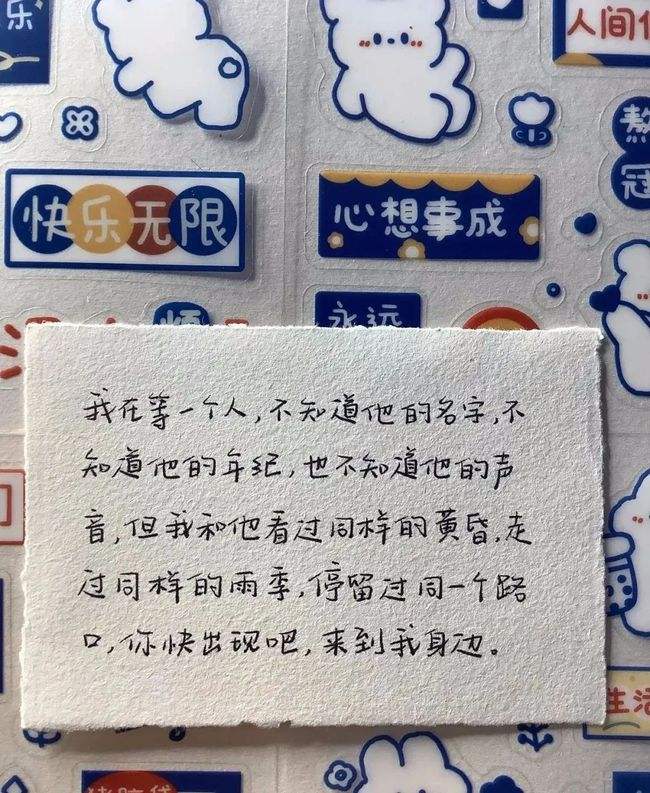 乐
人间
快乐无限
心想事成
熬
冠
永远
我在等一个人,不知道他的名字,不
知道他的年纪,也不知道他的声
音,但我和他看过同样的黄昏,走
过同样的雨季,停留过同一个路
口,你快出现吧,来到我身边。
生活